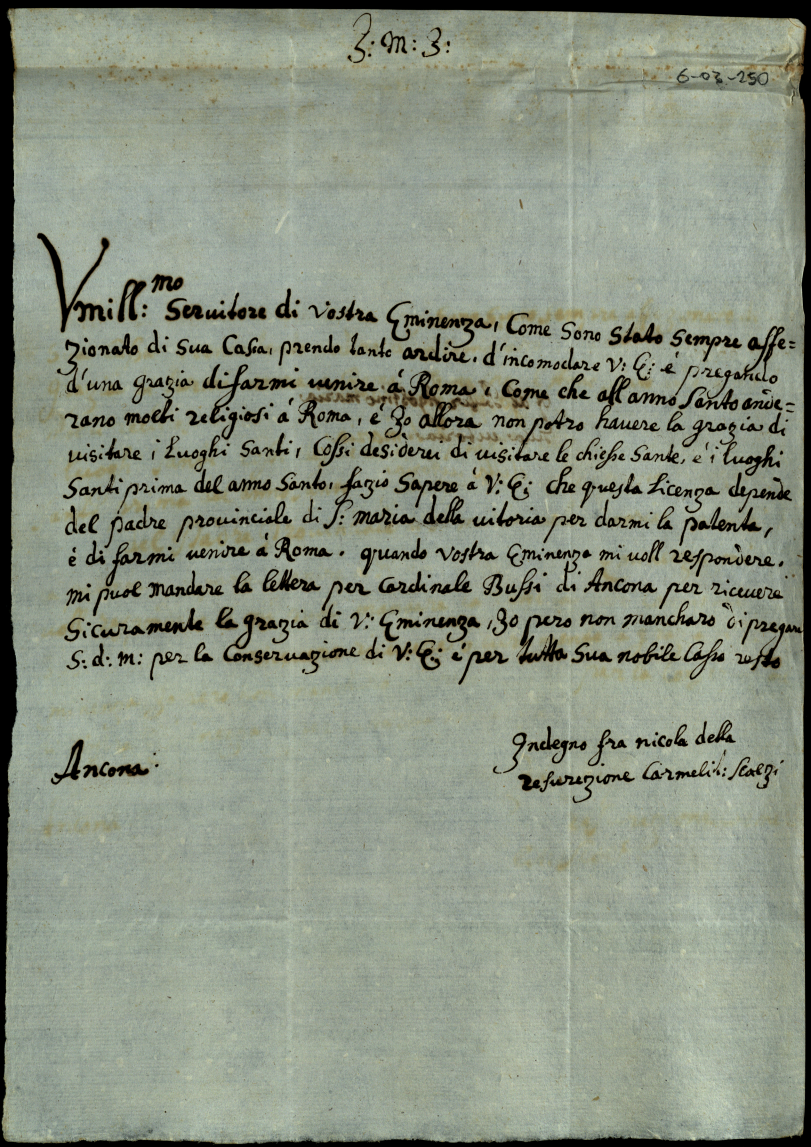 J: M: J:
6-03-250
Vmill:mo Servitore di Vostra Eminenza, Come Sono Stato Sempre affe=
zionato di Sua Casa, prendo tanto ardire, d'incomodare V: E: é pregando
d'una grazia di farmi venire á Roma, Come che all anno Santo ande=
rano molti religiosi á Roma, é Jo allora non potro havere la grazia di
visitare i Luoghi Santi, Cossi desiderei di visitare le chiesse Sante, é i luoghi
Santi prima del anno Santo, fazio Sapere á V: E: che questa Licenza depende
del padre provinciale di S: maria della vitoria per darmi la patenta,
é di farmi venire á Roma. quando Vostra Eminenza mi voll respondere.
mi puol mandare la lettera per Cardinale Bussi di Ancona per ricevere
Sicuramente la grazia di V: Eminenza, Jo pero non mancharo di pregare
S: d: m: per la Conservazione di V: E: é per tutta Sua nobile Cassa resto
Ancona:
Jndegno fra nicola della
resurezione Carmelit: Scalzi